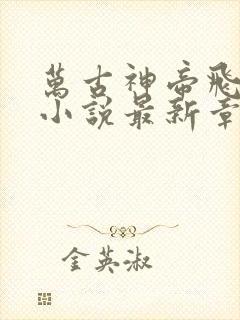 萬古神帝飛
小說最新章
金英淑